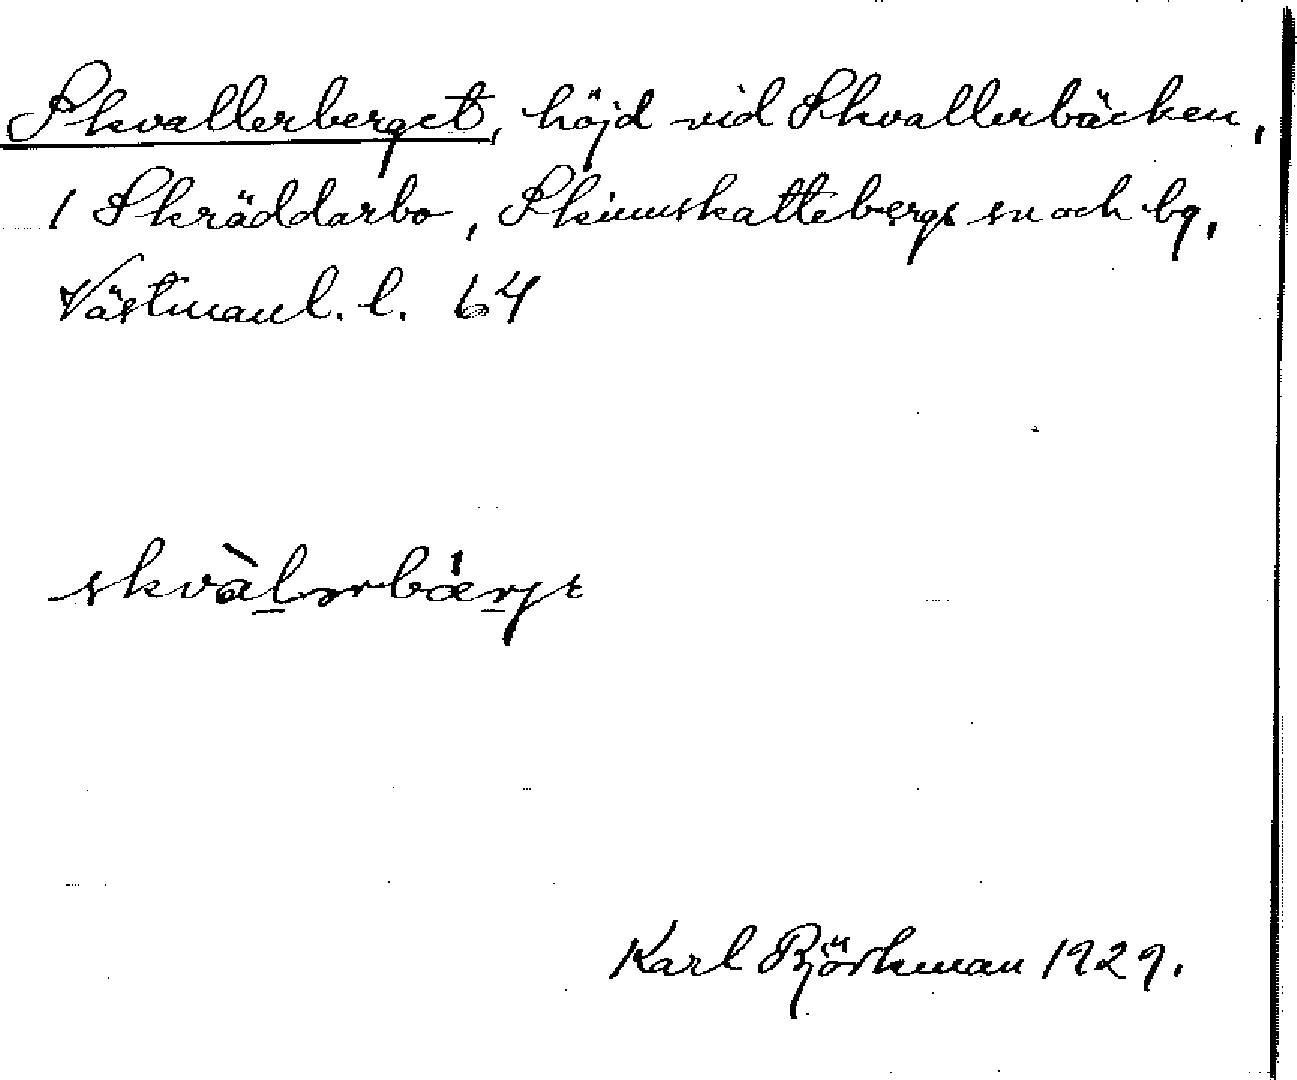 Skvallerberget, höjd vid Skvallerbäcken,
/ Skräddarbo, Skinnskattebergs sn och bg,
Västmanl. l. 64
skvàlərbærjə
Karl Björkman 1929.